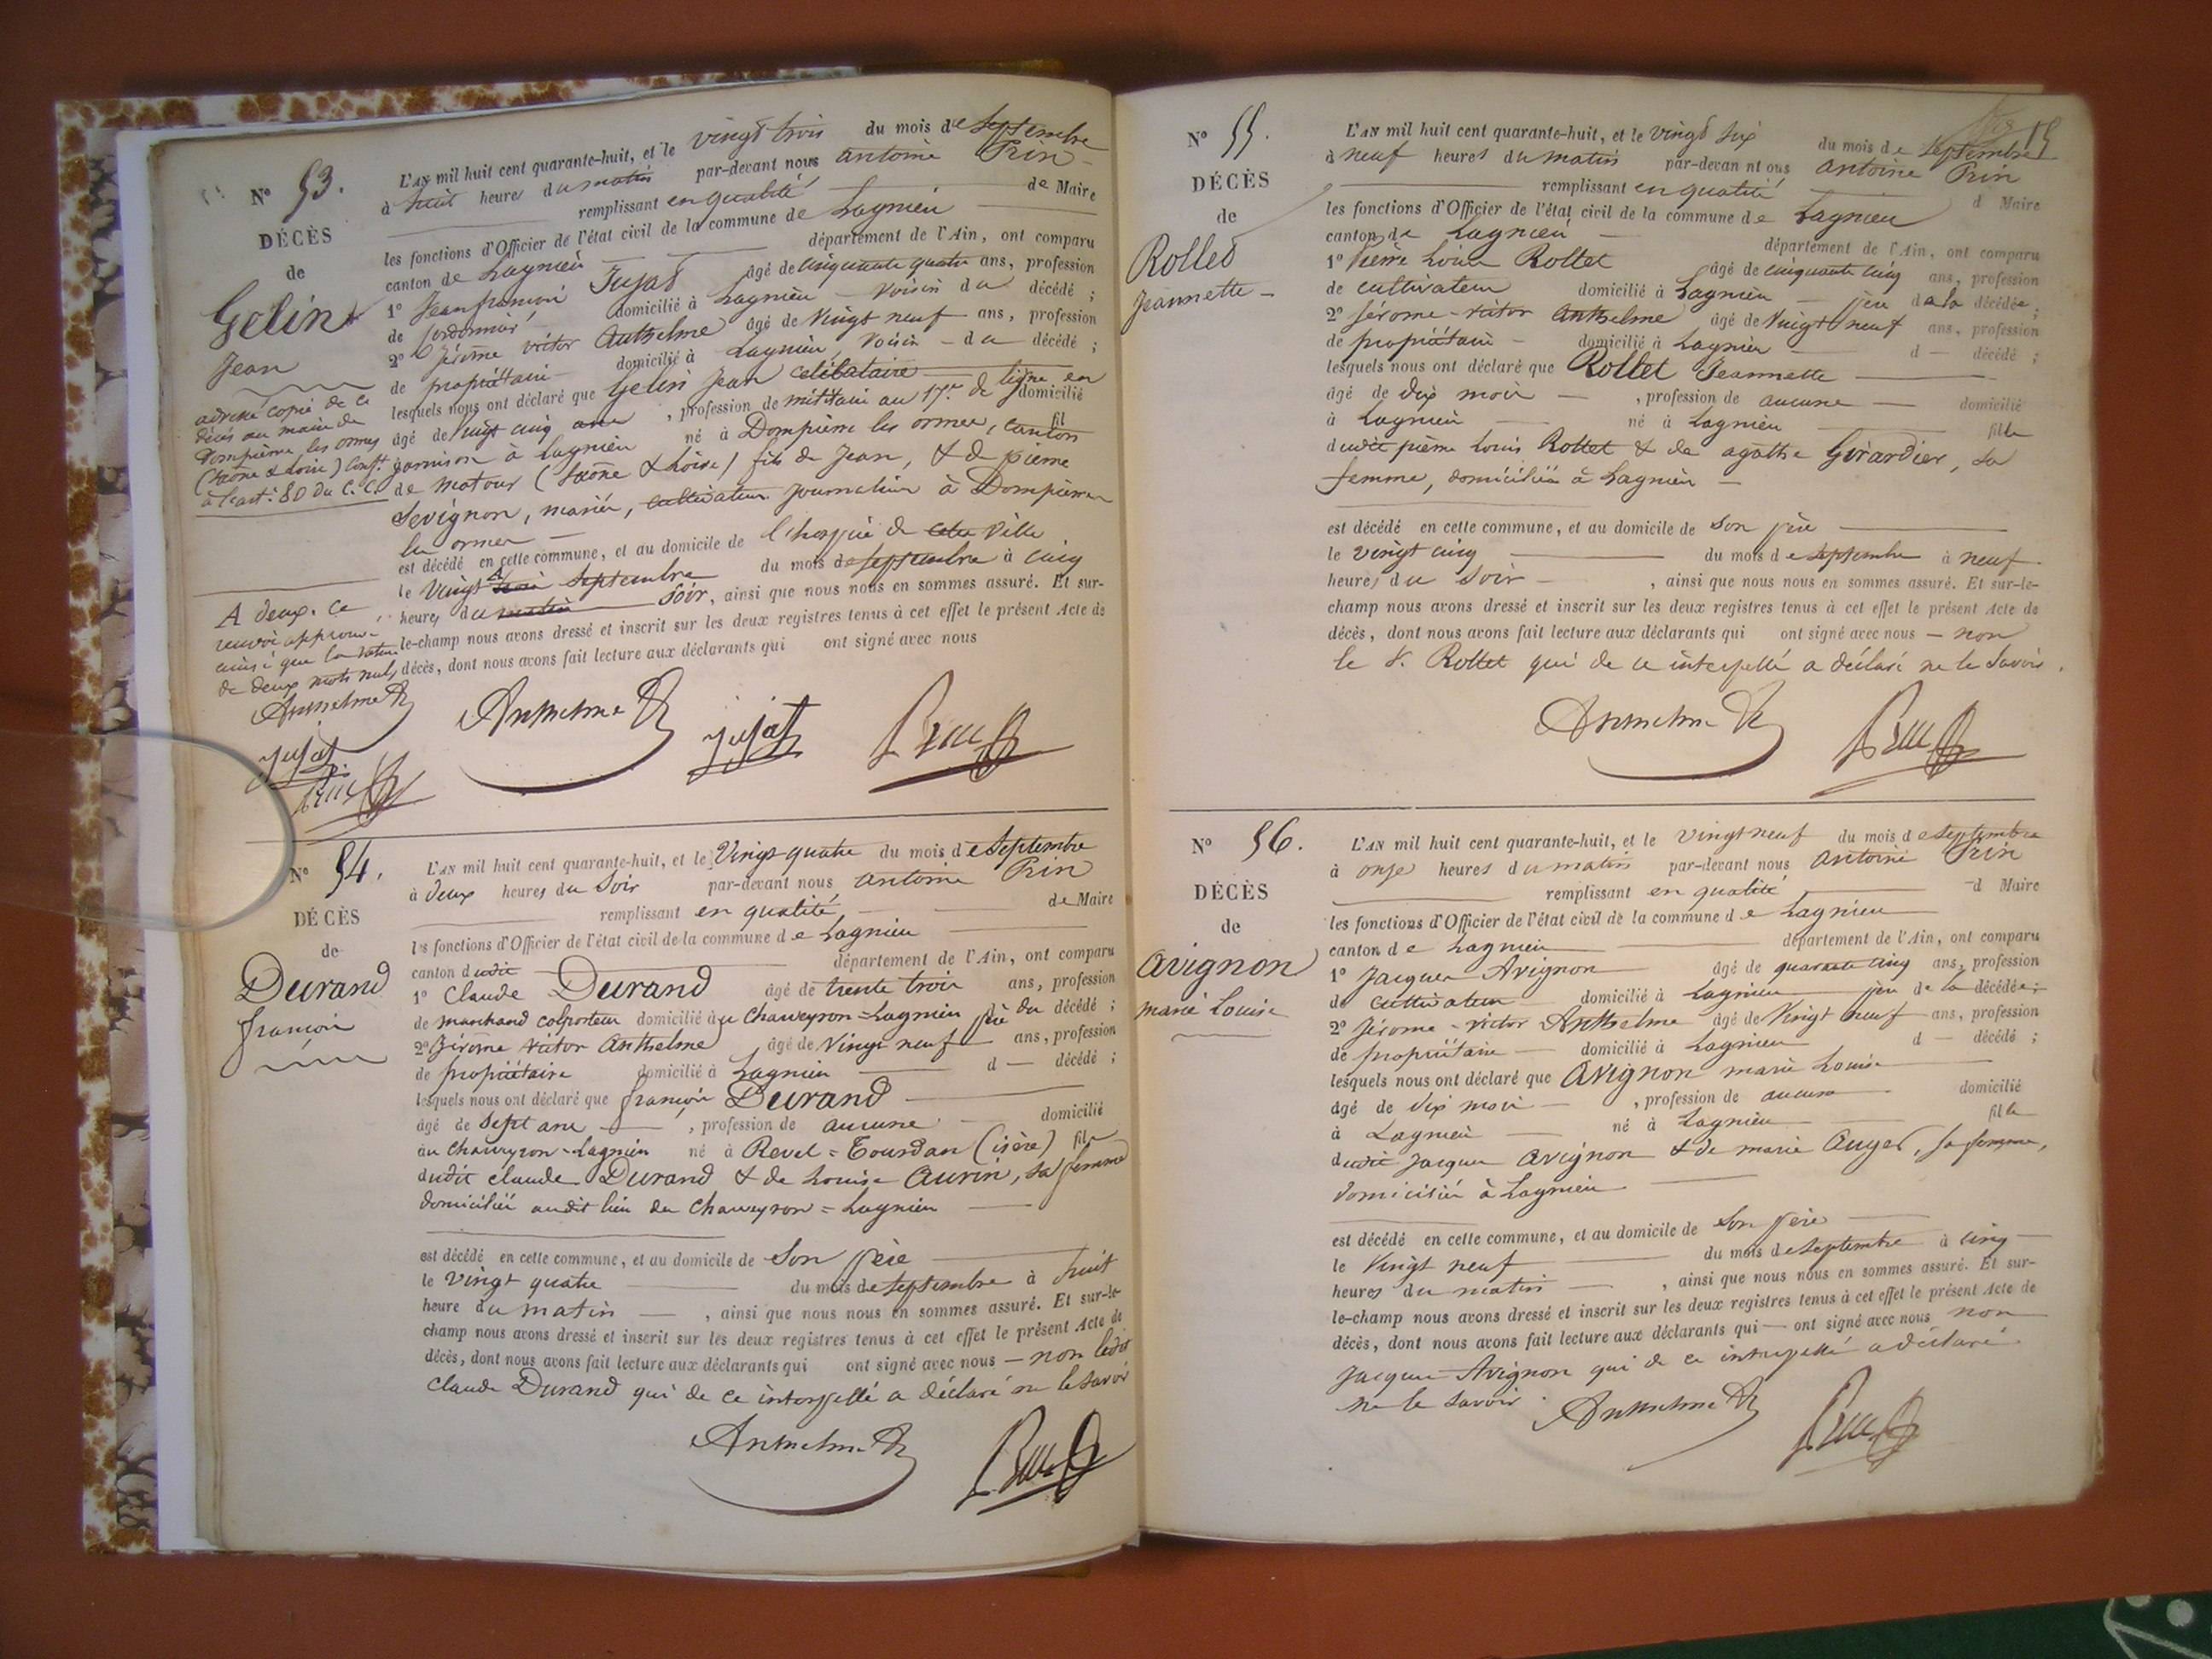 N° 53.
DÉCÈS
de
Gelin
Jean
adressé copie de ce
décès au maire de
Dompierre les ormes
(Saône & Loire) Conft.
à l'art. 80 du C. C.
L'AN mil huit cent quarante-huit, et le vingt trois du mois de Septembre
à huit heures du matin par-devant nous antoine Prin
remplissant en qualité de Maire
les fonctions d'Officier de l'état civil de la commune de Lagnieu
canton de Lagnieu département de l'Ain, ont comparu
1° Jean françois Jujat âgé de cinquante quatre ans, profession
de cordonnier domicilié à Lagnieu voisin du décédé ;
2° Jérôme victor Anthelme âgé de Vingt neuf ans, profession
de propriétaire domicilié à Lagnieu, voisin du décédé ;
lesquels nous ont déclaré que Gelin Jean célibataire
âgé de vingt cinq ans, profession de militaire au 17e de ligne en domicilié
garnison à Lagnieu né à Dompierre les ormes, canton fil
de matour (Saône & Loire) fils de Jean, & de pierrette
Sevignon, mariés, cultivateur journalier à Dompierre
les ormes
est décédé en cette commune, et au domicile de l'hospice de cette Ville
le Vingt trois Septembre du mois de septembre à cinq
heures du matin Soir, ainsi que nous nous en sommes assuré. Et sur-
le-champ nous avons dressé et inscrit sur les deux registres tenus à cet effet le présent Acte de
décès, dont nous avons fait lecture aux déclarants qui ont signé avec nous
A deux. Ce
renvoi approuvé
ainsi que la rature
de deux mots nuls
Anthelme
Jujat
Prin
Anthelme Jujat Prin
N° 54.
DÉCÈS
de
Durand
françois
L'AN mil huit cent quarante-huit, et le Vingt quatre du mois de Septembre
à deux heures du Soir par-devant nous antoine Prin
remplissant en qualité de Maire
les fonctions d'Officier de l'état civil de la commune de Lagnieu
canton dudit département de l'Ain, ont comparu
1° Claude Durand âgé de trente trois ans, profession
de marchand colporteur domicilié au Chauveyron=Lagnieu père du décédé ;
2° Jérome victor Anthelme âgé de Vingt neuf ans, profession
de propriétaire domicilié à Lagnieu d décédé ;
lesquels nous ont déclaré que françois Durand
âgé de Sept ans, profession de aucune domicilié
au Chauveyron=Lagnieu né à Revel=Tourdan (isère) fils
dudit claude Durand & de Louise Aurin, sa femme
domiciliés audit lieu du Chauveyron=Lagnieu
est décédé en cette commune, et au domicile de Son père
le vingt quatre du mois de septembre à huit
heure du matin, ainsi que nous nous en sommes assuré. Et sur-le-
champ nous avons dressé et inscrit sur les deux registres tenus à cet effet le présent Acte de
décès, dont nous avons fait lecture aux déclarants qui ont signé avec nous — non ledit
Claude Durand qui de ce interpellé a déclaré ne le savoir
Anthelme Prin
15
N° 55.
DÉCÈS
de
Rollet
Jeannette
L'AN mil huit cent quarante-huit, et le vingt six du mois de Septembre
à neuf heures du matin par-devan nt ous antoine Prin
remplissant en qualité d Maire
les fonctions d'Officier de l'état civil de la commune de Lagnieu
canton de Lagnieu département de l'Ain, ont comparu
1° Pierre Louis Rollet âgé de cinquante cinq ans, profession
de cultivateur domicilié à Lagnieu père de la décédée ;
2° Jérome-victor Anthelme âgé de Vingt neuf ans, profession
de propriétaire domicilié à Lagnieu d décédé ;
lesquels nous ont déclaré que Rollet Jeannette
âgé de dix mois, profession de aucune domicilié
à Lagnieu né à Lagnieu fille
dudit pierre Louis Rollet & de agathe Girardier, sa
femme, domiciliés à Lagnieu
est décédé en cette commune, et au domicile de Son père
le vingt cinq du mois de septembre à neuf
heures du Soir, ainsi que nous nous en sommes assuré. Et sur-le-
champ nous avons dressé et inscrit sur les deux registres tenus à cet effet le présent Acte de
décès, dont nous avons fait lecture aux déclarants qui ont signé avec nous — non
le S. Rollet qui de ce interpellé a déclaré ne le Savoir.
Anthelme Prin
N° 56.
DÉCÈS
de
Avignon
marie Louise
L'AN mil huit cent quarante-huit, et le vingt neuf du mois de septembre
à onze heures du matin par-devant nous antoine Prin
remplissant en qualité d Maire
les fonctions d'Officier de l'état civil de la commune de Lagnieu
canton de Lagnieu département de l'Ain, ont comparu
1° Jacques Avignon âgé de quarante cinq ans, profession
de cultivateur domicilié à Lagnieu père de la décédée ;
2° Jérome-victor Anthelme âgé de Vingt neuf ans, profession
de propriétaire domicilié à Lagnieu d décédé ;
lesquels nous ont déclaré que Avignon marie Louise
âgé de dix mois, profession de aucune domicilié
à Lagnieu né à Lagnieu fille
dudit Jacques Avignon & de marie Auger, sa femme,
domiciliés à Lagnieu
est décédé en cette commune, et au domicile de Son père
le Vingt neuf du mois de septembre à cinq
heures du matin, ainsi que nous nous en sommes assuré. Et sur-
le-champ nous avons dressé et inscrit sur les deux registres tenus à cet effet le présent Acte de
décès, dont nous avons fait lecture aux déclarants qui ont signé avec nous non
Jacques Avignon qui de ce interpellé a déclaré
ne le savoir.
Anthelme Prin